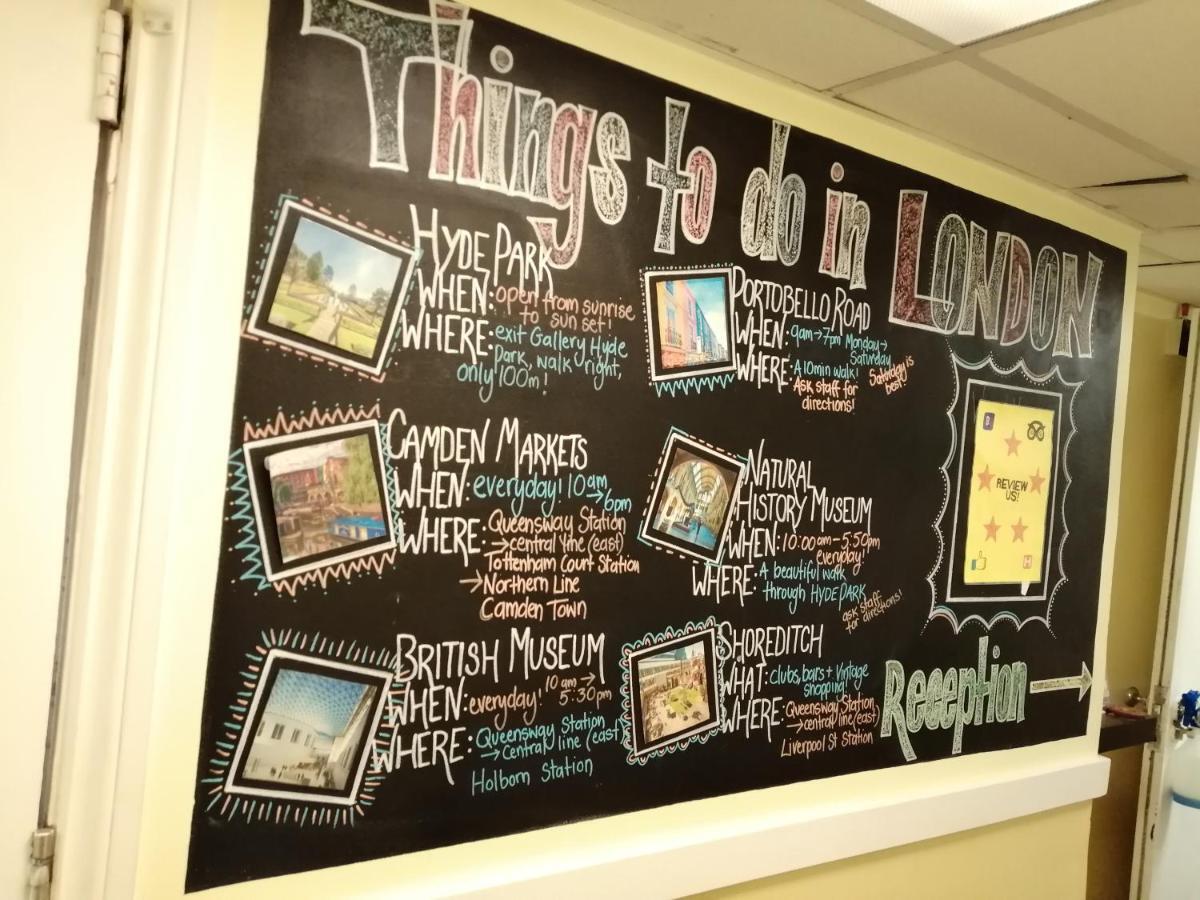 Things to do in LONDON
HYDE PARK
WHEN: open from sunrise
to sun set!
WHERE: exit Gallery Hyde
Park, walk right,
only 100m!
CAMDEN MARKETS
WHEN: everyday! 10am
→6pm
WHERE: Queensway Station
→central line (east)
Tottenham Court Station
→Northern Line
Camden Town
BRITISH MUSEUM
WHEN: everyday! 10am→
5:30pm
WHERE: Queensway Station
→central line (east)
Holborn Station
PORTOBELLO ROAD
WHEN: 9am→7pm Monday→
Saturday
WHERE: A 10min walk!
Ask staff for
directions!
Saturday is
best!
NATURAL
HISTORY MUSEUM
WHEN: 10:00am-5:50pm
everyday!
WHERE: A beautiful walk
through HYDE PARK
ask staff
for directions!
SHOREDITCH
WHAT: clubs, bars + vintage
shopping!
WHERE: Queensway Station
→central line (east)
Liverpool St Station
REVIEW
US!
H
Reception →